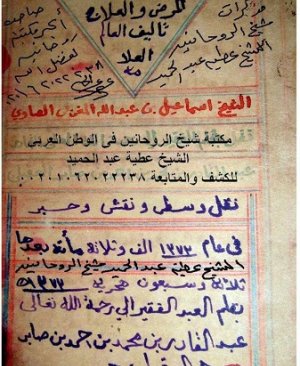 المرض والعلاج
تأليف العالم
العلامة
مذكرات
شيخ الروحانيين
الشيخ عطية عبد الحميد
صاحبة
روحانية
لفضل الله
الشيخ اسماعيل بن عبدالله المغربى الصاوى
مكتبة شيخ الروحانين فى الوطن العربى
الشيخ عطية عبد الحميد
للكشف والمتابعة ٠٠٢٠١٠٦٢٠٢٢٢٣٨
نقل وسطى ونقش وحبر
فى عام ١٣٧٣ الف وثلاثة مأئة بعدها
الشيخ عطية عبد الحميد شيخ الروحانيين
ثلاثة وسبعون هجرية ١٣٧٣
بقلم العبد الفقير الى رحمة الله تعالى
عبد القادر بن محمد بن احمد بن صابر